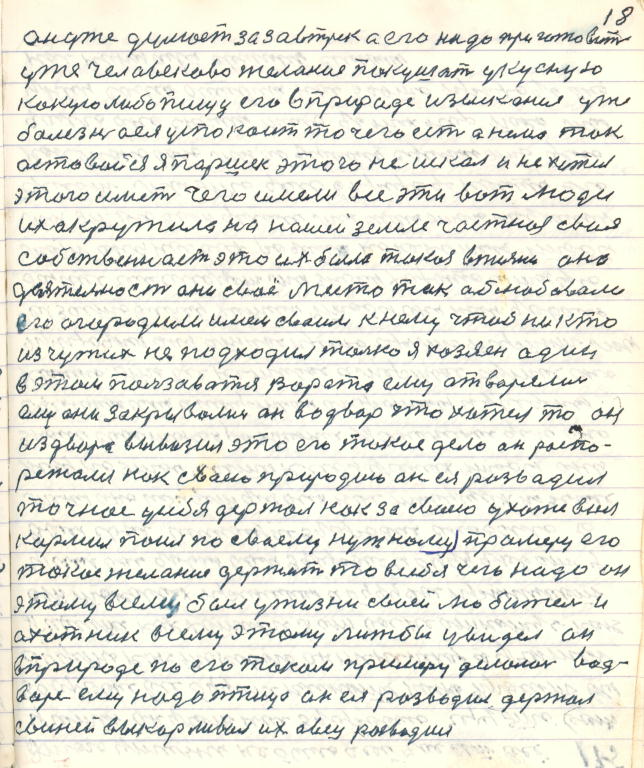 18
он уже думает за завтрек а его надо приготовить
уже человеково желание покушать укусную
какую либо пищу его в природе изыскания уже
болезн ая успокоит то чего ест а нема так
оставайся я паршек этого не искал и не хотел
этого иметь чего имели все эти вот люди
их акружила на нашей земле частная своя
собственност это их была такая втяни она
деятелност они своё место так абоснобовали
его огородили имем сваим к нему чтоб никто
из чужих не подходил толко я хозяен один
в этом ползаватя варота ему атварялии
ему они закрывалии он водвор что хотел то он
издвора вывозил это его такое дело он распо-
режался как сваею природаю он ея розвадил
точное усибя держал как за сваею ухаже вал
кармил поил по сваему нужному прамеру его
такое желание держат то всибя чего надо он
этому всему был ужизни своей любител и
охотник всему этому литбы увидел он
в природе по его таком примеру делалос вод-
варе ему надо птица он ея розводил держал
свиней выкармливал их авец розводил